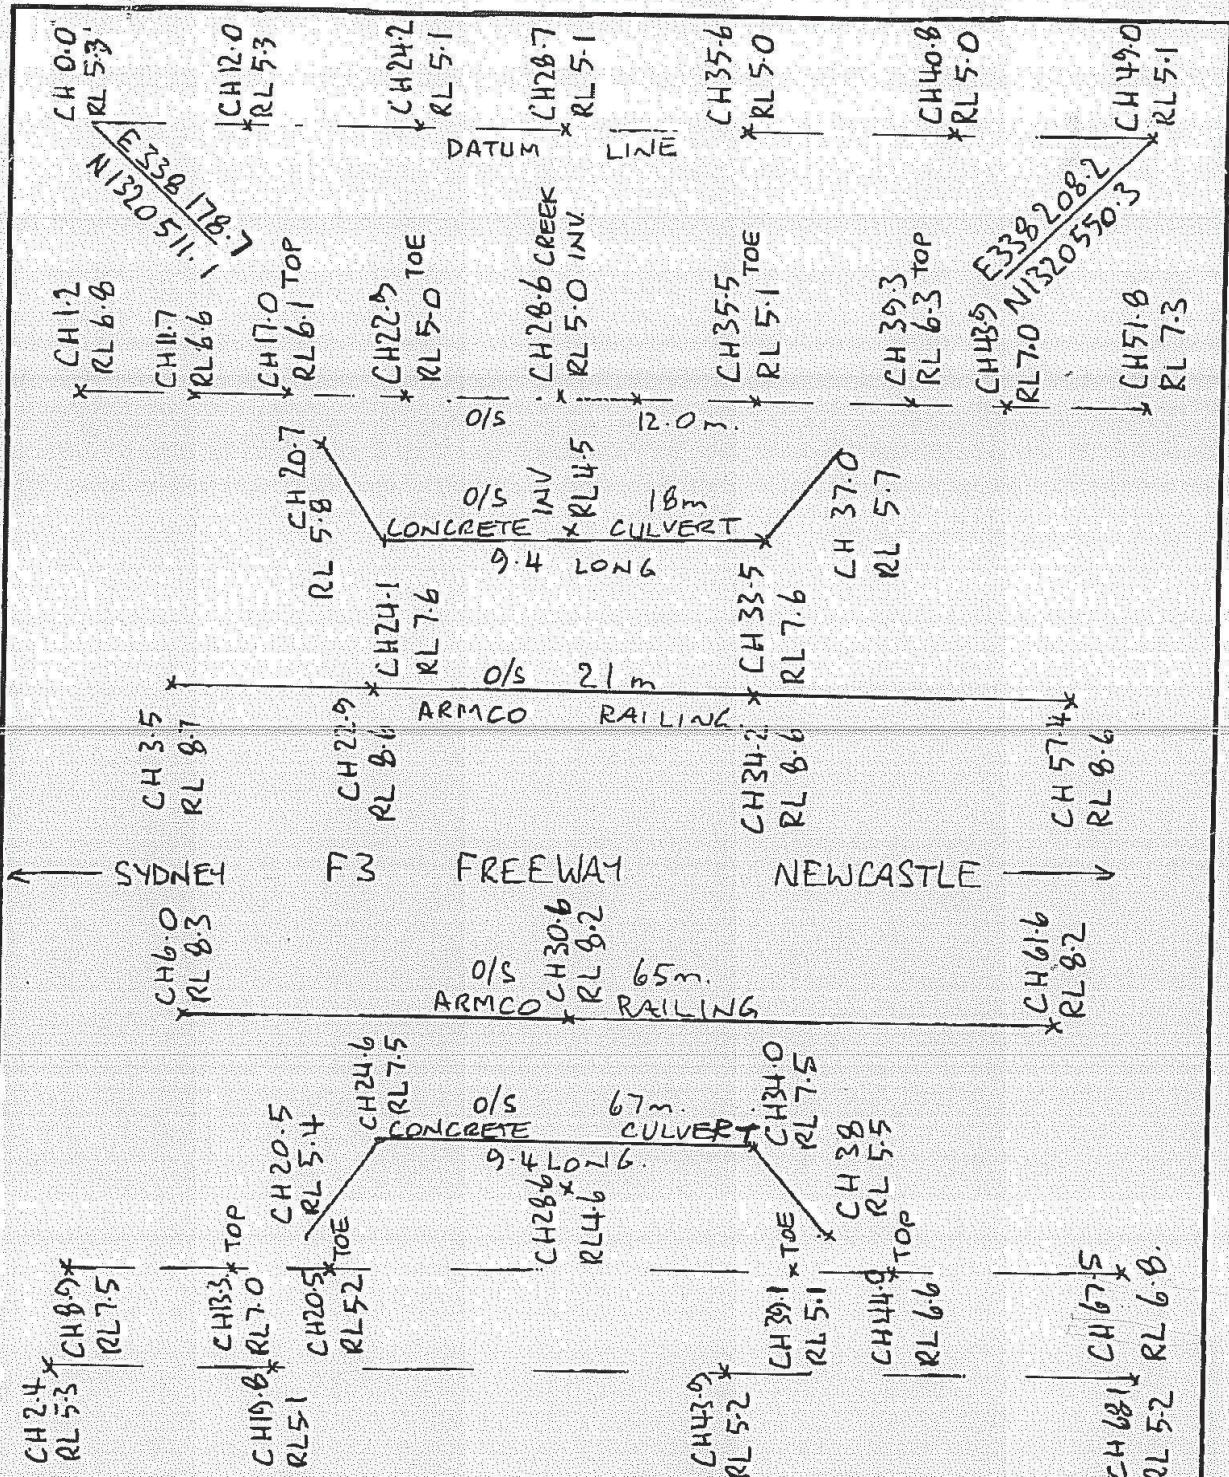 CH 0.0
RL 5.3
CH 12.0
RL 5.3
CH 24.2
RL 5.1
CH 28.7
RL 5.1
CH 35.6
RL 5.0
CH 40.8
RL 5.0
CH 49.0
RL 5.1
DATUM LINE
E338 178.7
N1320 511.1
E338 208.2
N1320 550.3
CH 1.2
RL 6.8
CH 11.7
RL 6.6
CH 17.0
RL 6.1 TOP
CH 22.9
RL 5.0 TOE
CH 28.6 CREEK
RL 5.0 INV.
CH 35.5
RL 5.1 TOE
CH 39.3
RL 6.3 TOP
CH 43.9
RL 7.0
CH 51.8
RL 7.3
O/S 12.0 m.
CH 20.7
RL 5.8
O/S 18m
INV
RL 4.5
CONCRETE CULVERT
9.4 LONG
CH 37.0
RL 5.7
CH 24.1
RL 7.6
CH 33.5
RL 7.6
O/S 21 m
ARMCO RAILING
CH 3.5
RL 8.7
CH 22.9
RL 8.6
CH 34.2
RL 8.6
CH 57.4
RL 8.6
SYDNEY F3 FREEWAY NEWCASTLE
CH 6.0
RL 8.3
CH 30.6
RL 8.2
CH 61.6
RL 8.2
O/S 65m.
ARMCO RAILING
CH 24.6
RL 7.5
O/S 67m.
CONCRETE CULVERT
9.4 LONG.
CH 34.0
RL 7.5
CH 20.5
RL 5.4
CH 38
RL 5.5
CH 28.6
RL 4.6
CH 8.9
RL 7.5
CH 13.3 TOP
RL 7.0
CH 20.5 TOE
RL 5.2
CH 39.1 TOE
RL 5.1
CH 44.9 TOP
RL 6.6
CH 67.5
RL 6.8.
CH 2.4
RL 5.3
CH 19.8
RL 5.1
CH 43.9
RL 5.2
CH 68.1
RL 5.2